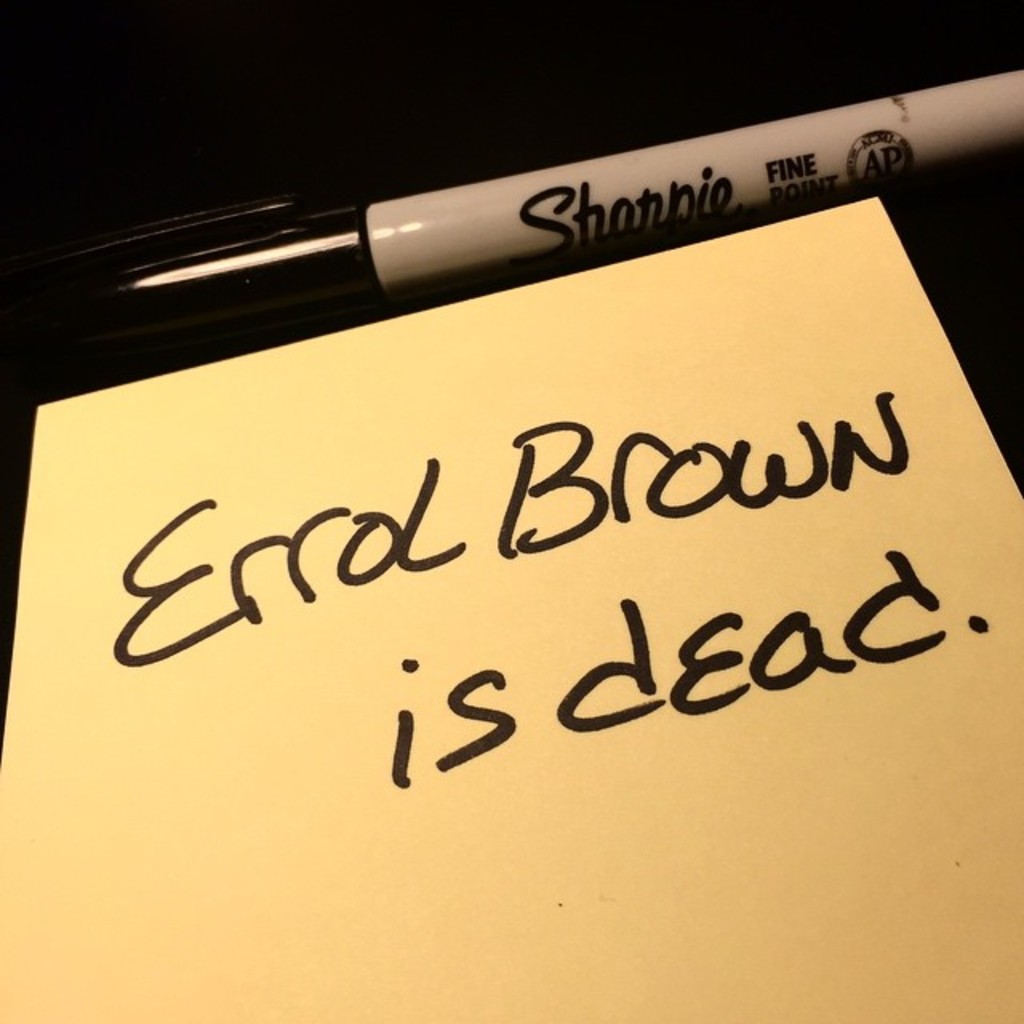 Sharpie FINE
POINT AP
Errol Brown
is dead.